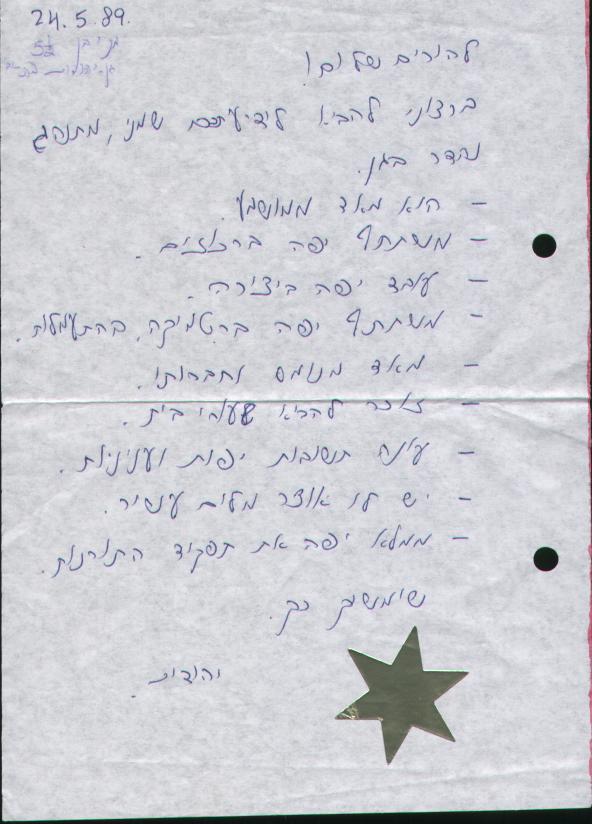 24.5.89.
גן
להורים שלום!
ברצוני להביא לידיעתכם שמני, מתנהג
נהדר בגן.
- הוא מאד ממושמע.
- משתתף יפה ברכוזים.
- עובד יפה ביצירה.
- משתתף יפה ברטמיקה, בהתעמלות.
- מאד מנומס וחברותי.
- זוכר להביא שעורי בית.
- עונה תשובות יפות ועניניות.
- יש לו אוצר מלים עשיר.
- ממלא יפה את תפקיד התורנות.
שימשיך כך.
יהודית.